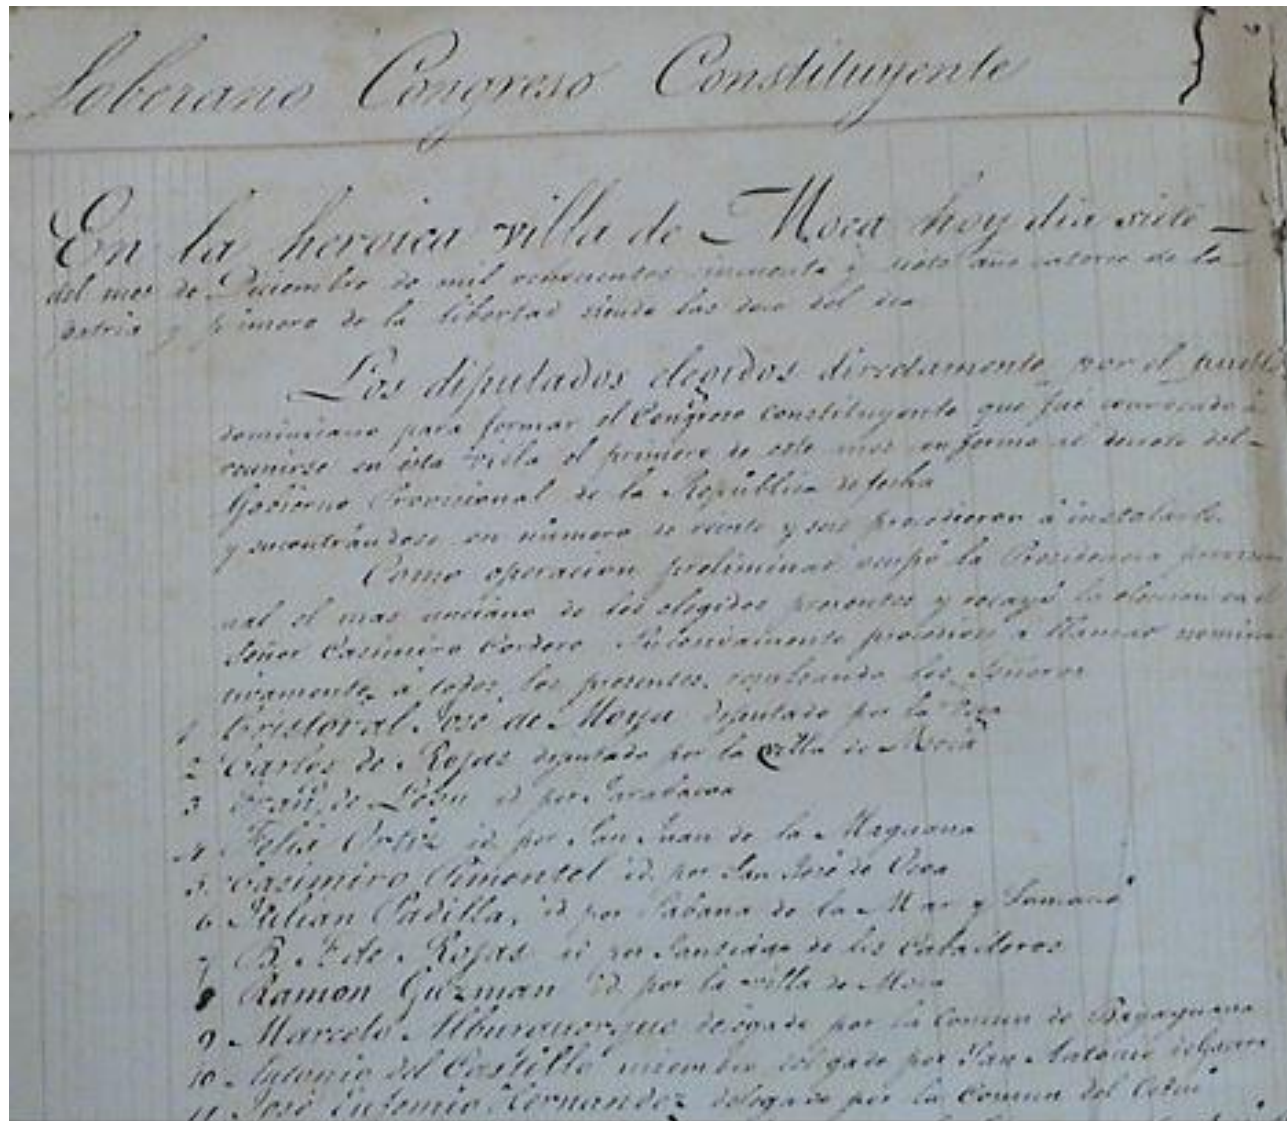 Soberano Congreso Constituyente
En la heroica villa de Moca hoy dia siete
del mes de Diciembre de mil ochocientos cincuenta y siete año catorce de la
patria y primero de la libertad siendo las doce del dia
Los diputados elegidos directamente por el pueblo
dominicano para formar el Congreso Constituyente que fue convocado á
reunirse en ésta villa el primero de este mes en forma al decreto del
Gobierno Provisional de la República de fecha
y encontrándose en número de veinte y seis procedieron á instalarse.
Como operacion preliminar ocupó la Presidencia
nal el mas anciano de los elegidos presentes y recayó la eleccion en el
Señor Casimiro Cordero. procedióse a llamar
á todos los presentes, resultando los Señores
1 Cristoval José de Moya diputado por la Vega
2 Carlos de Rojas diputado por la villa de Moca
3 de Leon id por Jarabacoa
4 Felix Ortiz id por San Juan de la Maguana
5 Casimiro Pimentel id. por San José de Ocoa
6 Julian Padilla, id por Sabana de la Mar y Samaná
7 B. F. de Rojas id por Santiago de los Caballeros
8 Ramon Guzman id por la villa de Moca
9 Marcelo Alburquerque delegado por la Comun de Bayaguana
10 Antonio del Castillo miembro delegado por San Antonio de Guerra
11 José Eufemio Hernandez delegado por la Comun del Cotui